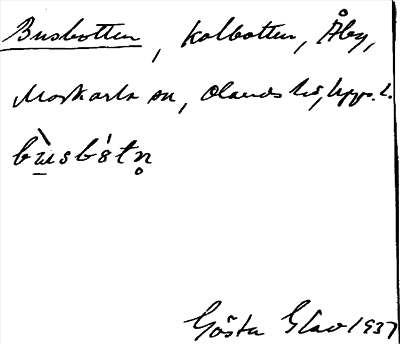 Busbotten, kolbotten, Åby,
Morkarla sn, Olands hd, Upps. l.
bùsbót​n̥
Gösta Glav 1937